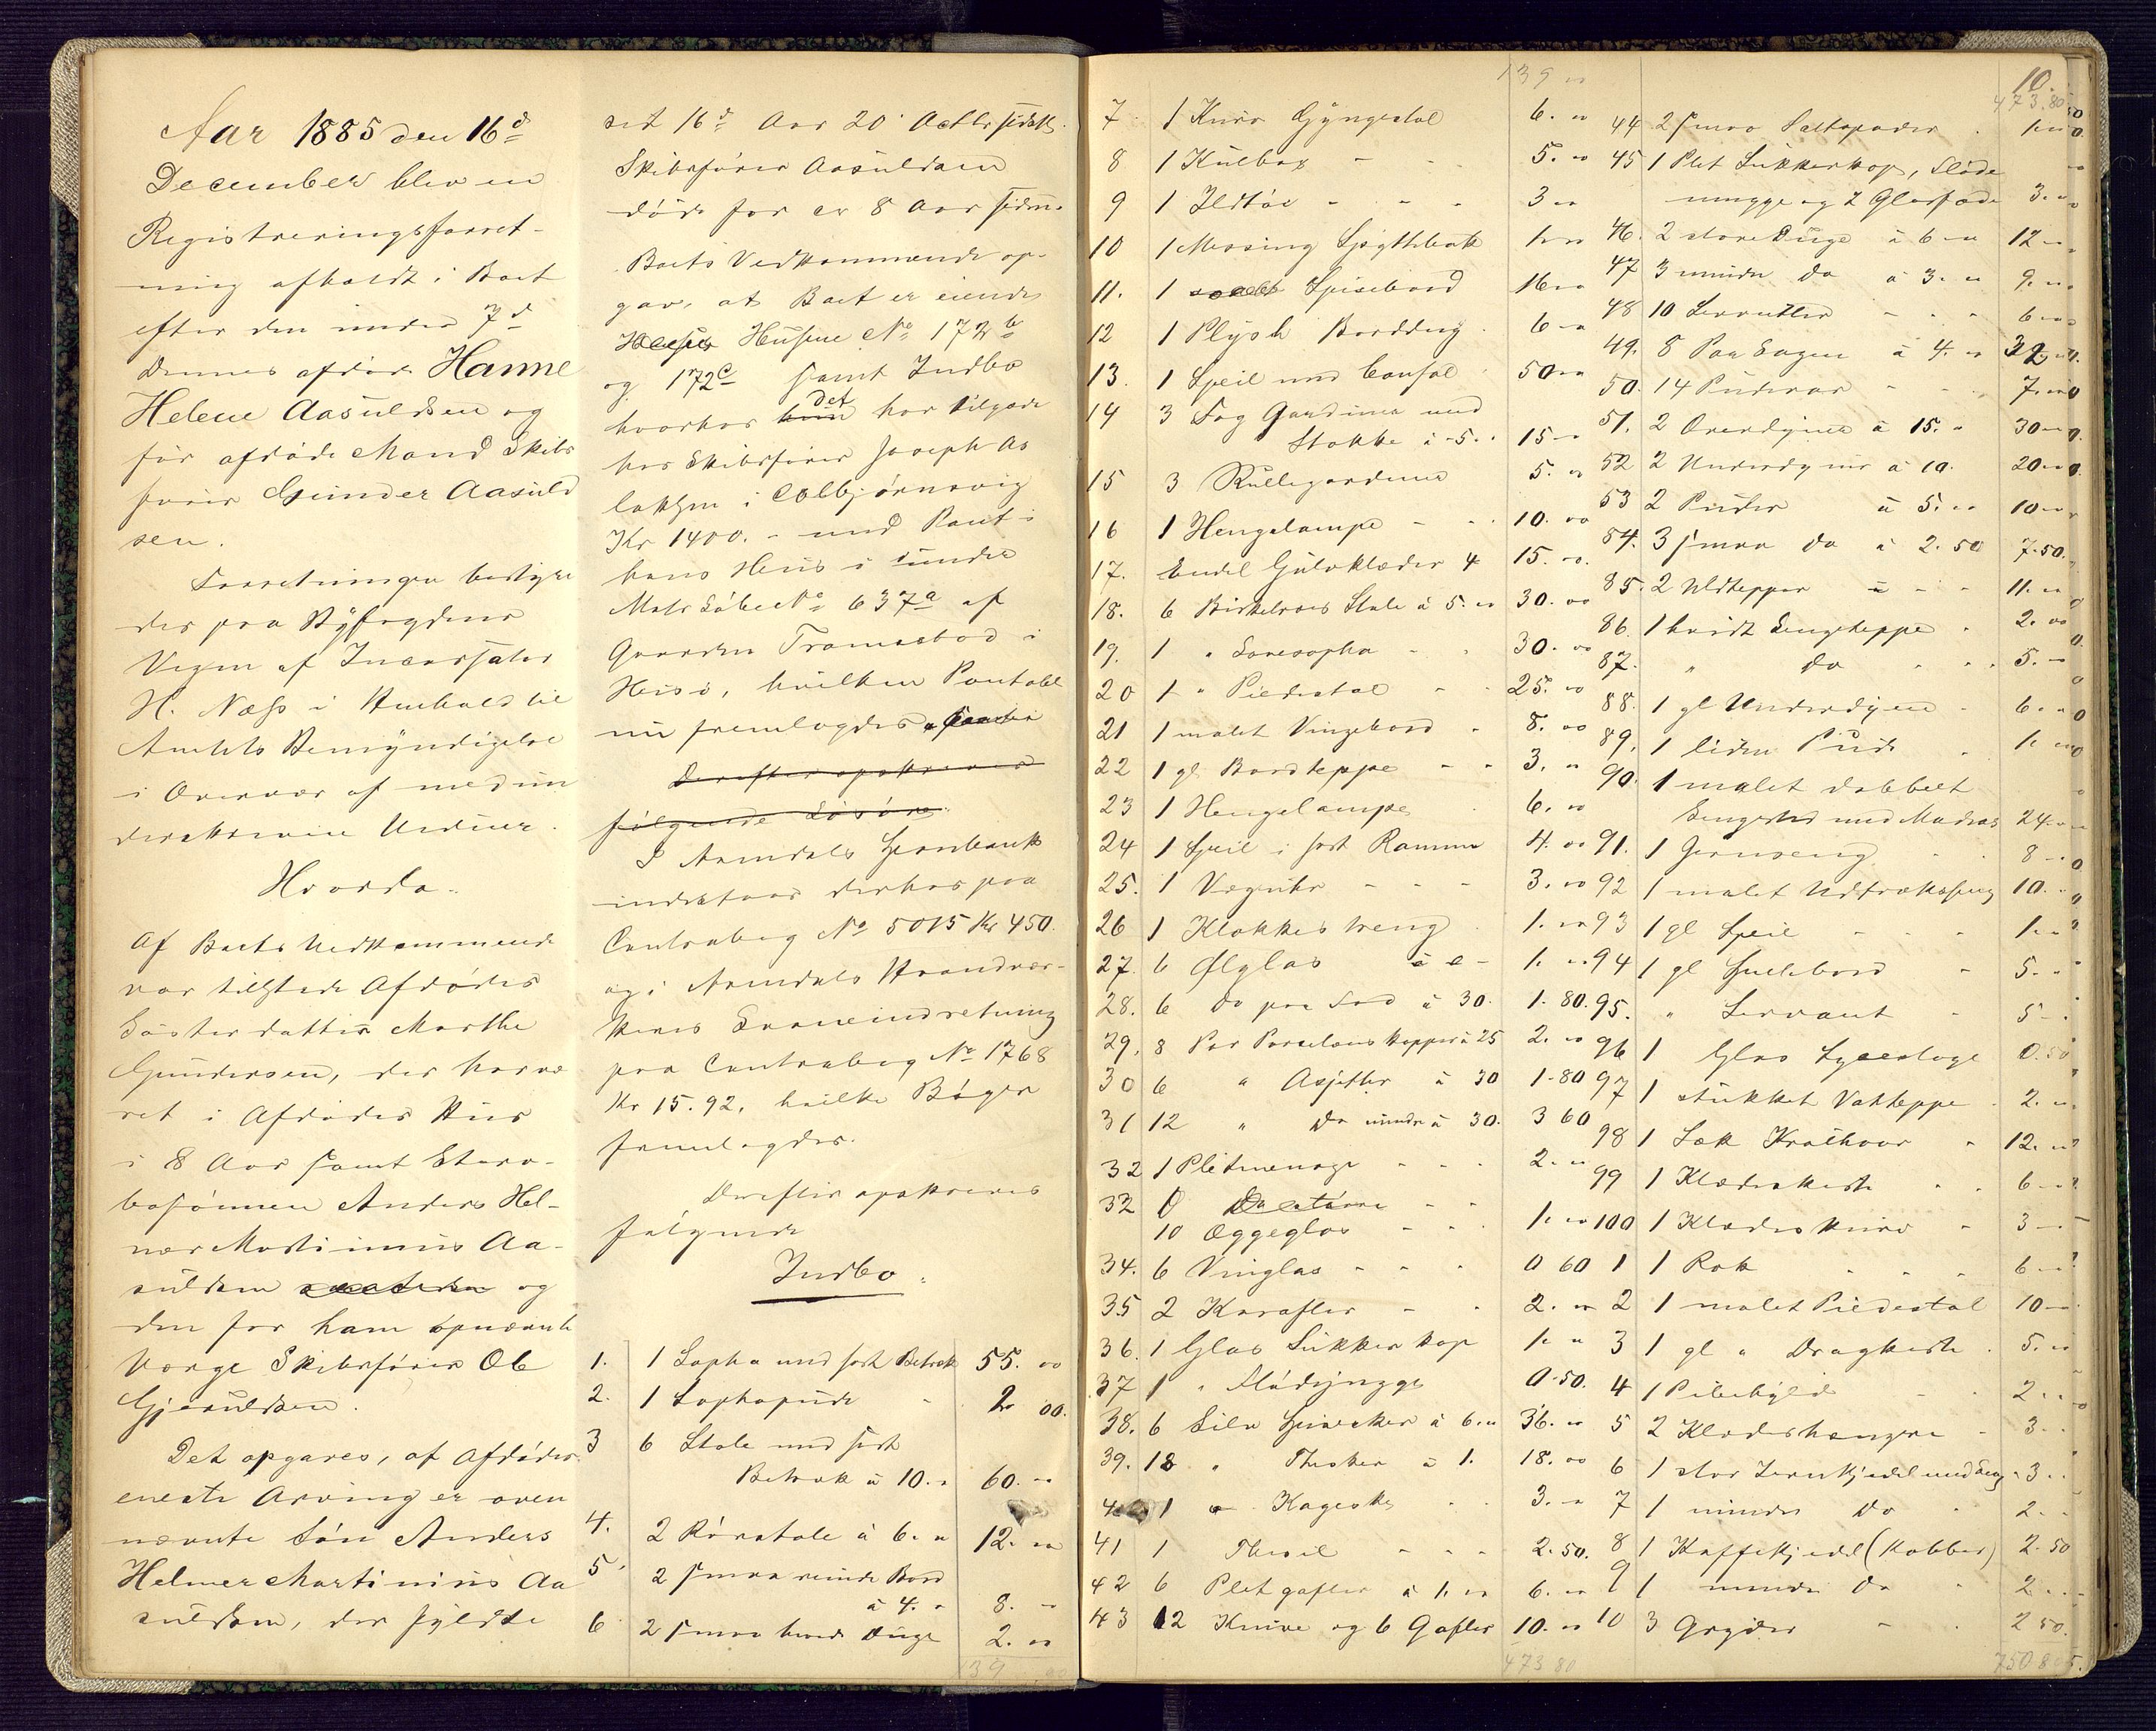 Aar 1885 den 16d
December blev en
Registreringsforret-
ning afholdt i Boet
efter den under 7d
dennes afdøde Hanne
Helene Aasuldsen og
før afdøde Mand Skibs
fører Gunder Aasuld
sen.
Forretningen bestyre
des paa Byfogdens
Vegne af
H. Næss i Henhold til
Amtets Bemyndigelse
i Overvær af med un
derskrevne Vidner.
Hvorda:
Af Boets Vedkommende
var tilstede Afdødes
Søsterdatter Marthe
Gundersen, der har væ
ret i Afdødes Hus
i 8 Aar samt Sterv-
bosønnen Anders Hel-
mer Martinius Aa-
suldsen og
den for ham opnævnte
Værge Skibsfører Ole
Gjeruldsen.
Det opgaves, at Afdødes
eneste Arving er oven
nævnte Søn Anders
Helmer Martinius Aa
suldsen, der fyldte
sit 16d Aar 20 Octbr sidstl.
Skibsfører Aasuldsen
døde for ca 8 Aar siden.
Boets Vedkommende op-
gav, at Boet er eiende
Husene No 172b
og 172c samt Indbo
hvorhos det har tilgode
hos Skibsfører Joseph As
laksen i Colbjørnsvig
Kr 1400.- med Pant i
hans Hus i under
Matr Løbe No 637a af
Gaarden Tromestad i
Hisø, hvilken Pantobl
nu fremlagdes
Derefter opskreves
følgende Løsøre
I Arendals Sparebank
indestaar derhos paa
Contrabog No 5015 Kr 450.
og i Arendals Haandvær-
keres Laaneindretning
paa Contrabog No 1768
Kr 15.92, hvilke Bøger
fremlagdes.
Derefter opskreves
følgende
Indbo:
1. 1 Sopha med sort Betræk 55. 00
2. 1 Sophapude - 2 00.
3 6 Stole med sort
Betræk à 10. " 60. "
4. 2 Rørstole à 6. " 12. "
5 2 smaa runde Bord
à 4. " 8. -
6 2 smaa hvide Duge 2. "
139 00
139 "
7 1 Kurv Gyngestol 6. "
8 1 Kulbox - - 5. "
9 1 Ildtøi - - - 3 "
10 1 Messing Spyttebak 1. "
11. 1 Spisebord 16. "
12 1 Plysh Borddug 6 "
13. 1 Speil med Consol 50 "
14 3 Fag Gardiner med
Stokke à 5. " 15 "
15 3 Rullegardiner 5. "
16 1 Hengelampe - - 10. 00
17. Endel Gulvklæder 4 15. "
18. 6 Birketræs Stole à 5. " 30. 00
19. 1 " Sovesopha - - 30. "
20 1 " Piedestal - - 25. "
21 1 malet Vingebord - 8. 00
22 1 gl. Bordteppe - - 3. "
23 1 Hengelampe 6. "
24 1 Speil i sort Ramme 4. 00
25. 1 Væguhr - - - 3. 00
26 1 Klokkestreng 1. "
27. 6 Ølglas 1. "
28. 6 do paa Fod à 30. 1. 80.
29. 8 Par Porcelæns Kopper à 25 2. "
30 6 " Asjetter à 30 1-80
31 12 " do mindre à 30. 3 60
32 1 Pletmenage - - - 2. "
10 Æggeglas - - 1. "
34. 6 Vinglas - - - 0 60
35 2 Karafler - - 2. "
36. 1 Glas Sukkerkop 1. "
37 1 " Flødemugge 0.50.
38. 6 Sølv Spiseskeer à 6. " 36. "
39. 18 " Theskeer à 1. 18. 00
1 " Kageske 3. "
41 1 Thesil - - - 2.50.
42 6 Plet gafler à 1. " 6. "
43 12 Knive og 6 Gafler 10. "
473 80
10.
473.80
44 2 smaa Saltspader 1. "
45 1 Plet Sukkerkop, Fløde
mugge og 2 Glasfade 3. "
46. 2 store Duge à 6 " 12 "
47 3 mindre do à 3. " 9. "
48 10 Servietter - - - 6 "
49. 8 Par Lagen à 4. " 32. "
50. 14 Pudevar - - 7. "
51. 2 Overdyner à 15. " 30 "
52 2 Underdyner à 10. 20 "
53 2 Puder à 5. " 10 "
54. 3 smaa do à 2.50 7.50.
85. 2 Uldtepper - - 11. "
86. 1 hvidt Sengeteppe 2. 00
87. " do - - - 5. -
88. 1 gl Underdyne - 6. "
89. 1 liden Pude 1. "
90. 1 malet dobbelt
Sengested med Madras 24. "
91. 1 Jernseng - - 8 "
92 1 malet Udtræksseng 10. "
93 1 gl Speil - - - 1. "
94 1 gl Spillebord - 5. "
95. " Servant - 5 -
96 1 Glas Lysestage 0.50
97 1 stukket Vatteppe 2. "
98 1 Sæk Krølhaar - 12. "
99 1 Klædeskiste - - 6 "
100 1 Klædeskurv - 3 -
1 1 Rok - - - 6 "
2 1 malet Piedestal 10 "
3 1 gl " Dragkiste 5. "
4 1 Pibehylde - - 2. "
5 2 Klædeshengere - 3 -
6 1 stor Jernkjedel med Laag 3. "
7 1 mindre do 2 -
8 1 Kaffekjedel (Kobber) 2.50
9 1 mindre do - 2. "
10 3 Gryder - - 2 50.
750 80